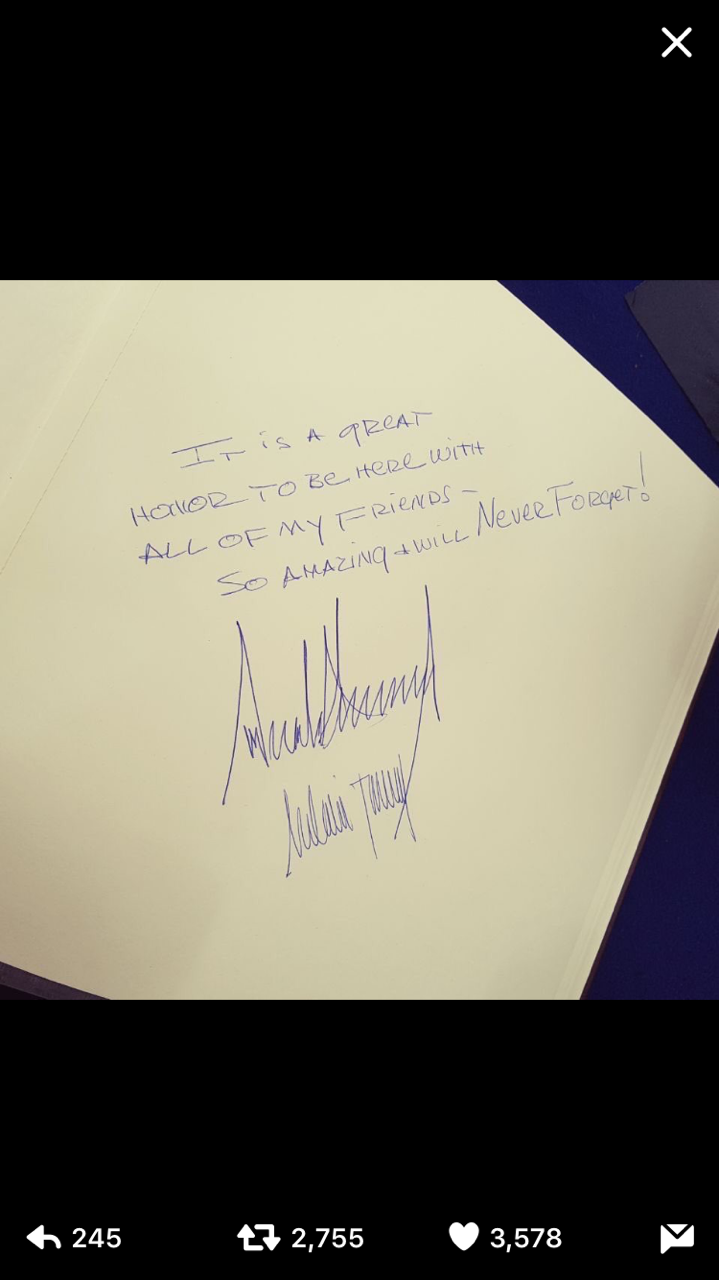 It is a great
honor to be here with
all of my friends -
so amazing + will Never Forget!
Donald Trump
Melania Trump
245
2,755
3,578